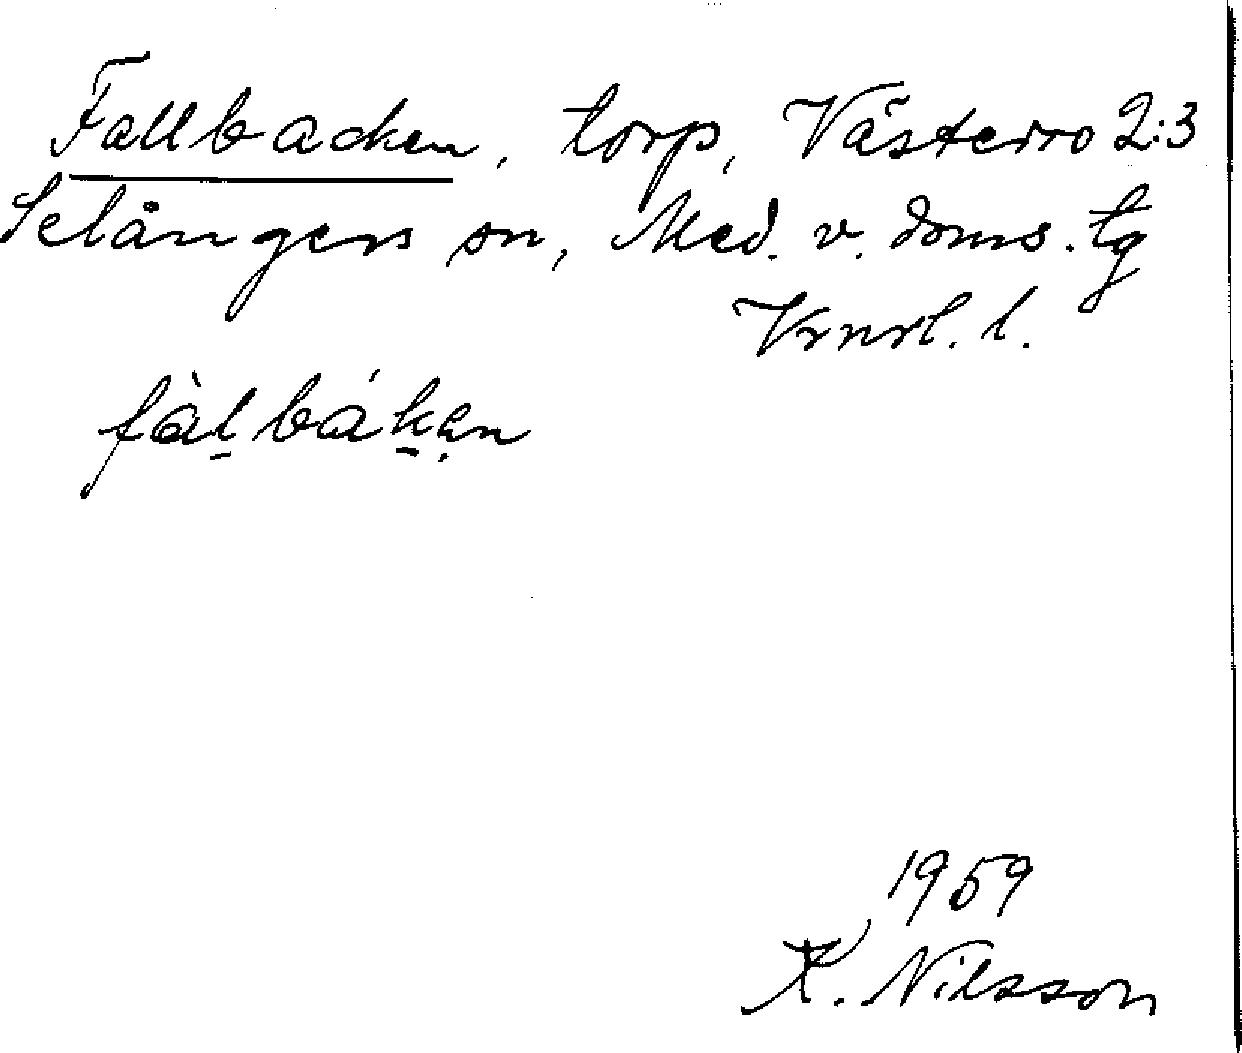 Fallbacken, torp, Västerro 2:3
Selångers sn, Med. v. doms. tg
Vrnrl. l.
fàl̠bák̠ẹn
1959
K. Nilsson